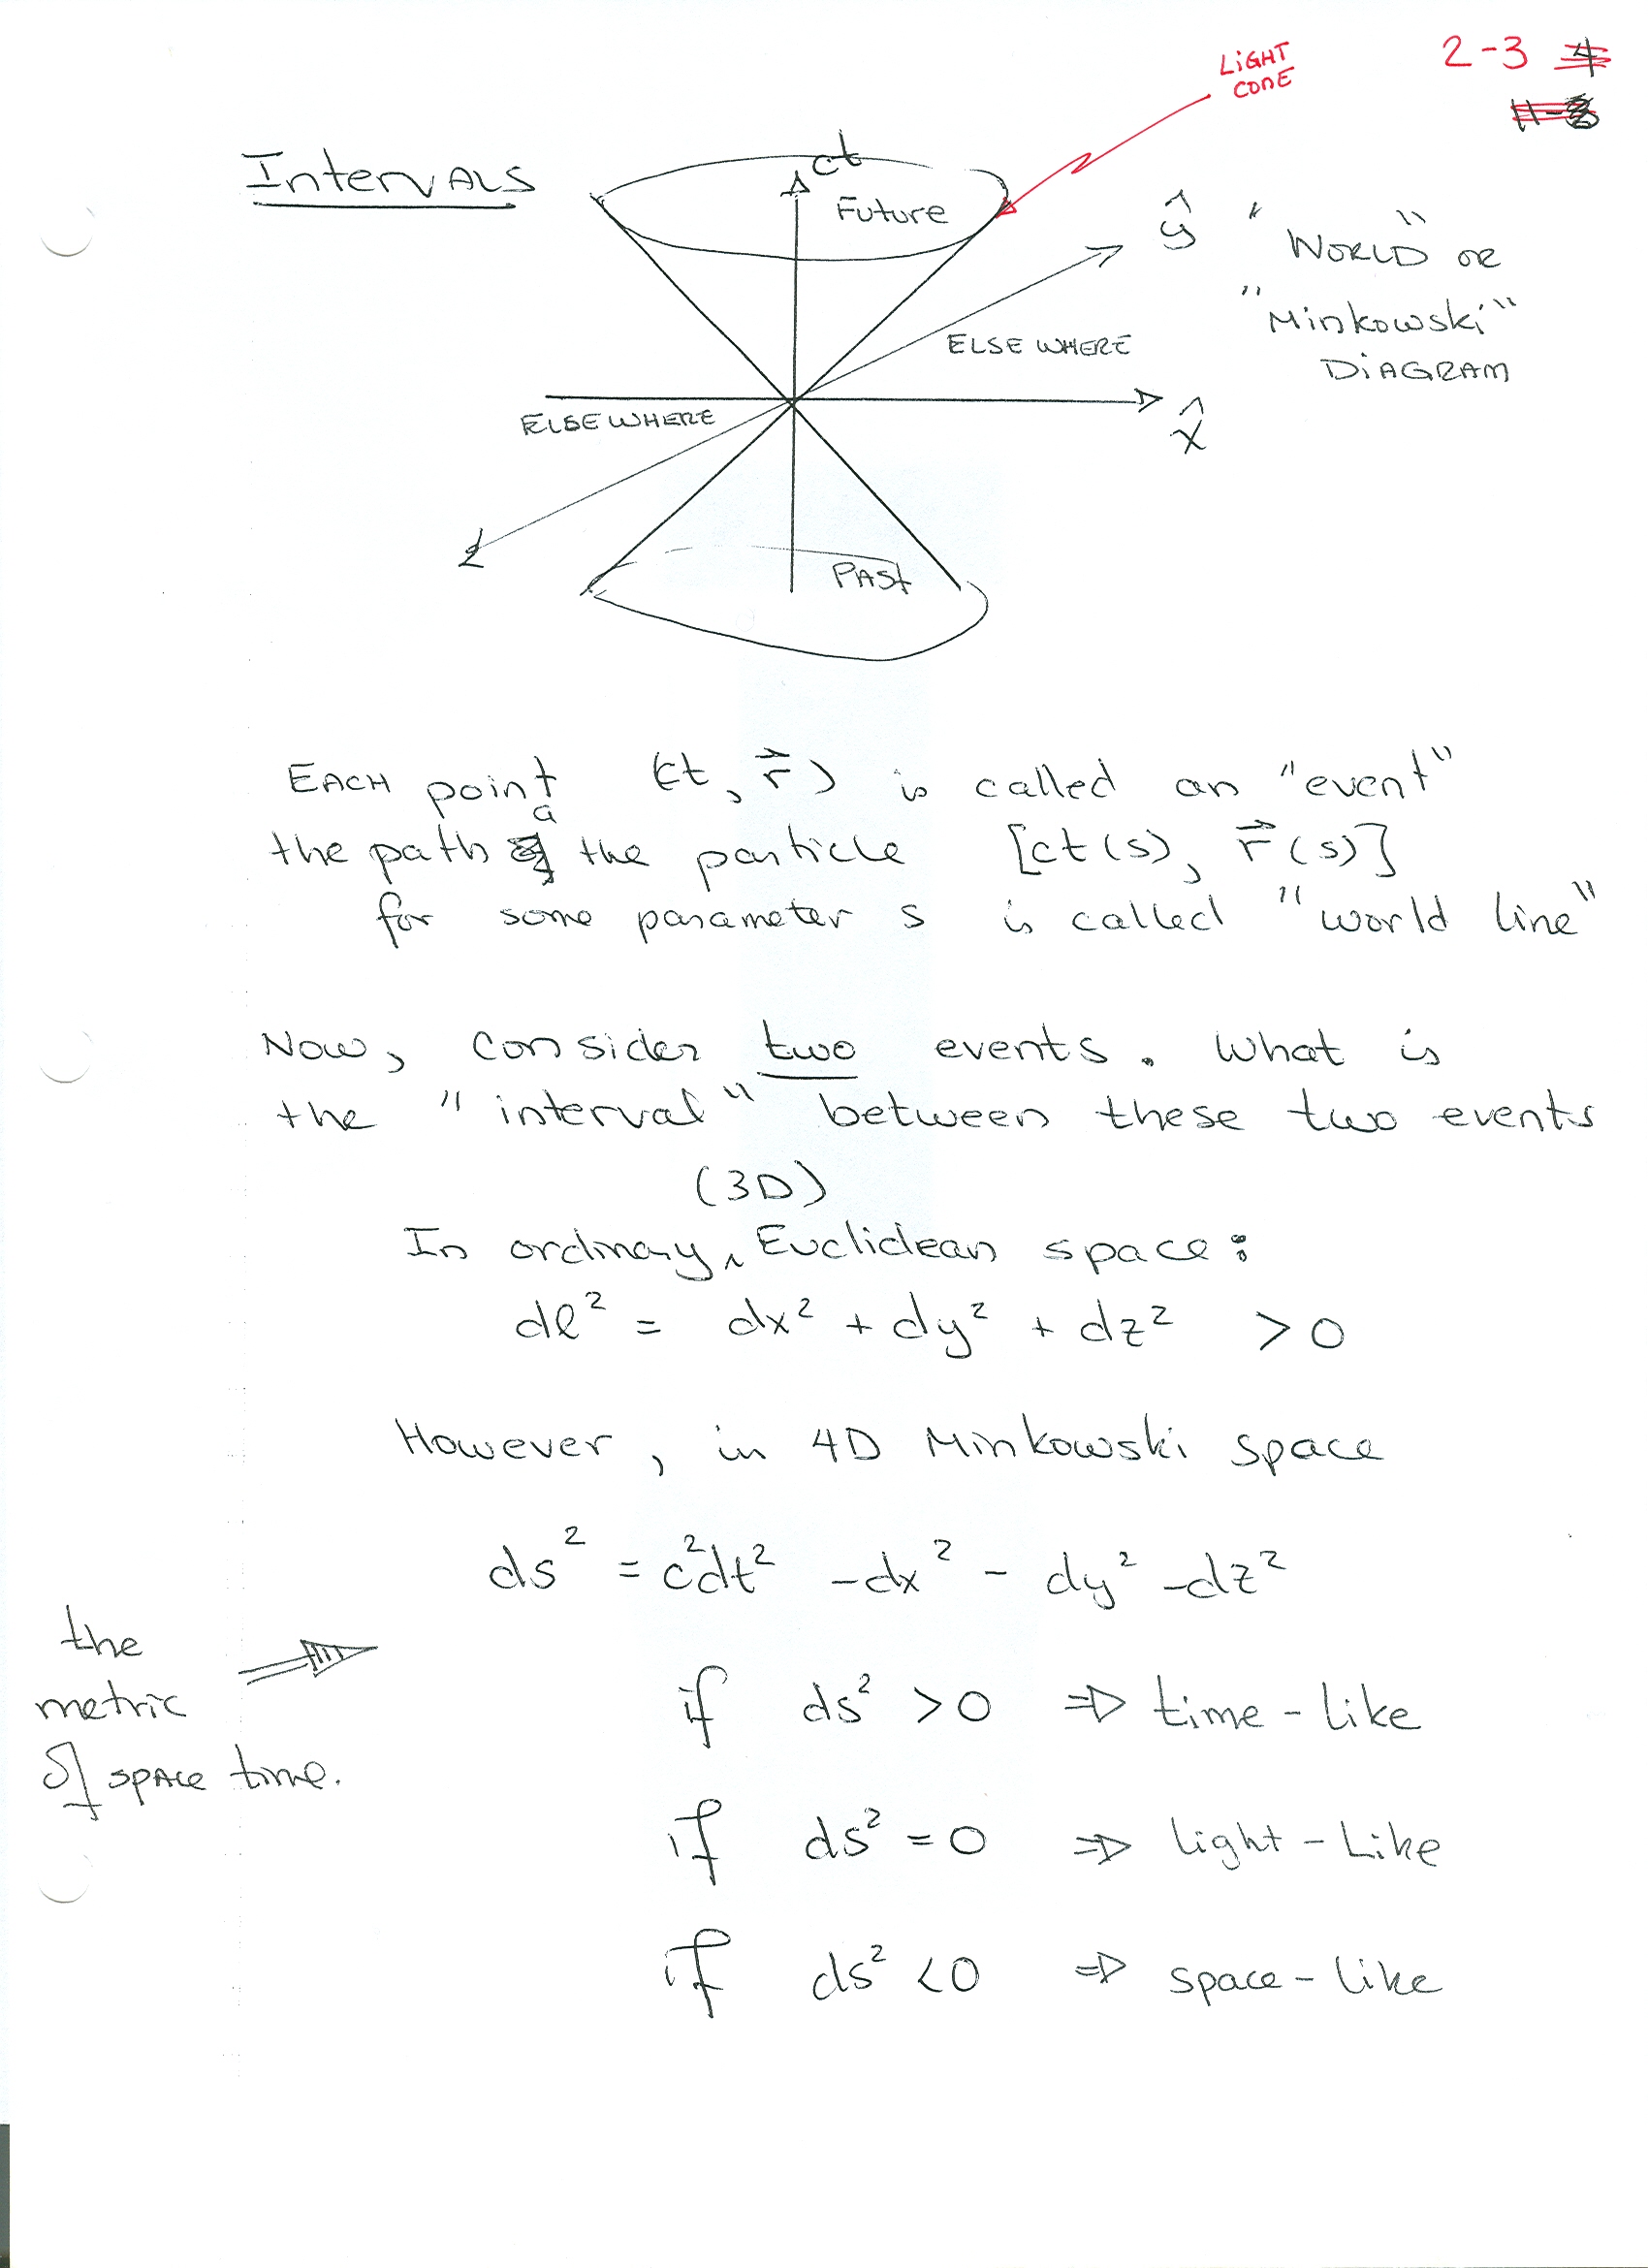 2-3
LiGHT
CONE
Intervals
ct
Future
ŷ
"World" or
"Minkowski"
DiAGRAM
ELSEWHERE
ELSEWHERE
x̂
z
PASt
EACH point (ct, r⃗) is called an "event"
the path of a the particle [ct(s), r⃗(s)]
for some parameter s is called "world line"
Now, consider two events. What is
the "interval" between these two events
(3D)
In ordinary ‸ Euclidean space:
dl² = dx² + dy² + dz² > 0
However, in 4D Minkowski space
ds² = c²dt² - dx² - dy² - dz²
the
metric
of space time.
if ds² > 0 ⇒ time-like
if ds² = 0 ⇒ light-Like
if ds² < 0 ⇒ space-like